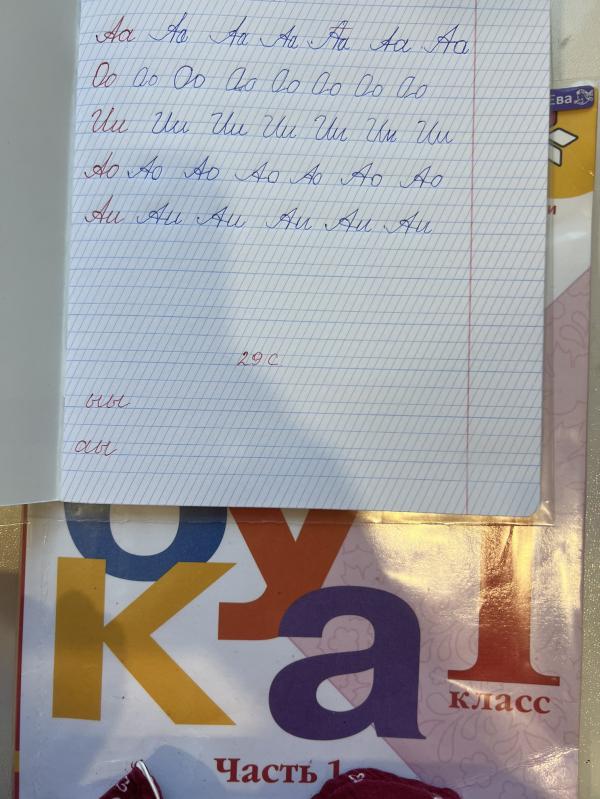 Аа Аа Аа Аа Аа Аа Аа
Оо Оо Оо Оо Оо Оо Оо Оо
Ии Ии Ии Ии Ии Ии Ии
Ао Ао Ао Ао Ао Ао Ао
Аи Аи Аи Аи Аи Аи
29 с
ыы
аы
Ева
и
бу
ка 1
класс
Часть 1